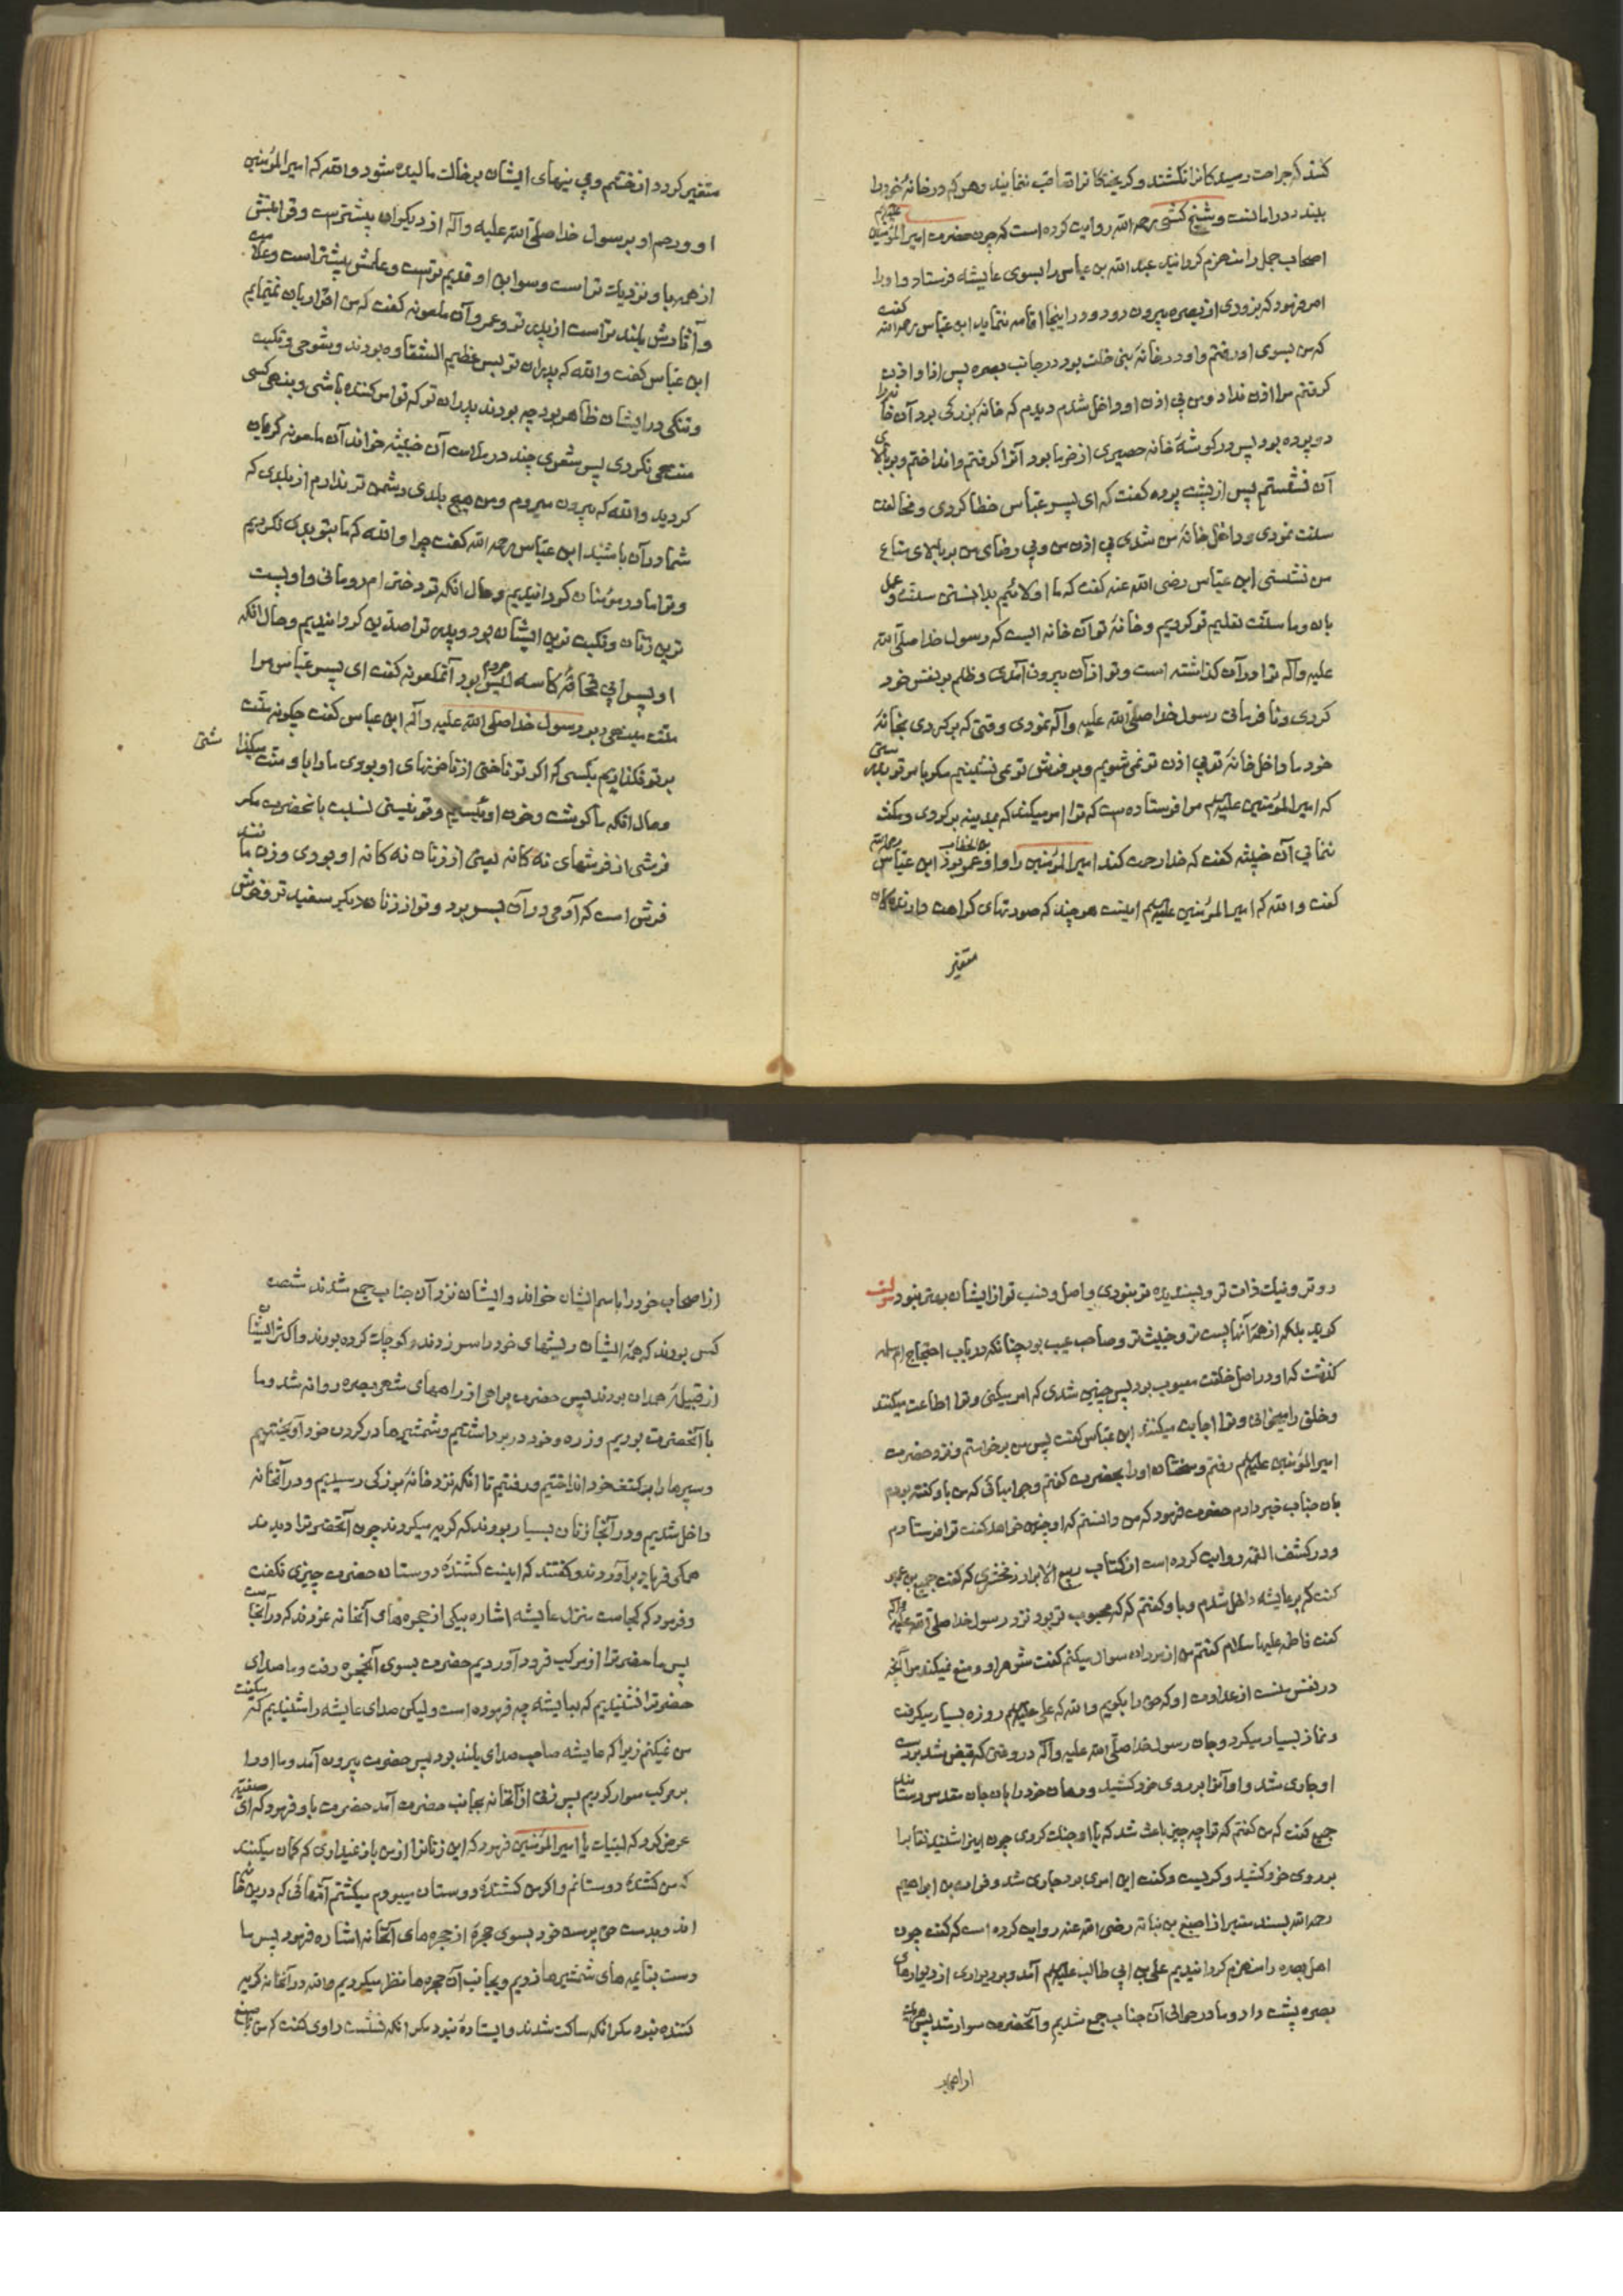 کنند که جراحت رسیدکانرا نکشند و کریختکانرا تعاقب ننمایند و هر که در خانهٔ خود را
ببندد در امانست و شیخ کشی رحمه الله روایت کرده است که چون حضرت امیر المؤمنین علیه السلام
اصحاب جمل را منهزم کردانید عبد الله بن عباس را بسوی عایشه فرستاد و او را
امر فرمود که بزودی از بصره بیرون رود و در اینجا اقامه ننماید ابن عباس رحمه الله کفت
که من بسوی او رفتم و او در خانهٔ بنی خلف بود در جانب بصره پس از او اذن
کرفتم مرا اذن نداد و من بی اذن او داخل شدم دیدم که خانهٔ بزرکی بود آن خانه را
دو پرده بود پس در کوشهٔ خانه حصیری از خرما بود آنرا کرفتم و انداختم و بر بالای
آن نشستم پس از پشت پرده کفت که ای پسر عباس خطا کردی و مخالفت
سنت نمودی و داخل خانهٔ من شدی بی اذن من و بی رضای من بر بالای متاع
من نشستی ابن عباس رضی الله عنه کفت که ما اولائیم بدانستن سنت و عمل
بان و ما سنت تعلیم تو کردیم و خانهٔ تو آن خانه ایست که رسول خدا صلی الله
علیه و آله ترا در آن کذاشته است و تو از آن بیرون آمدی و ظلم بر نفس خود
کردی و نافرمانی رسول خدا صلی الله علیه و آله نمودی وقتی که برکردی بخانهٔ
خود ما داخل خانهٔ تو بی اذن تو نمی شویم و بر فرش تو نمی نشینیم مکر بامر تو بدرستی
که امیر المؤمنین علیه السلام مرا فرستاده است که ترا امر میکند که بمدینه برکردی و مکث
ننمائی آن خبیثه کفت که خدا رحمت کند امیر المؤمنین را و او عمر بود بن الخطاب ابن عباس رحمه الله
کفت والله که امیر المؤمنین علیه السلام اینست هر چند که صورتهای کراهت دارندکان
متغیر
متغیر کردد از خشم و بینیهای ایشان بر خاک مالیده شود والله که امیر المؤمنین
او و رحم او برسول خدا صلی الله علیه و آله از دیکران بیشترست و قرابتش
از همه باو نزدیک تر است و سوابق او قدیم ترست و علمش بیشتر است و علامت
و آثارش بلند تر است از پدر تو و عمر و آن ملعونه کفت که من اقرار بان نمینمایم
ابن عباس کفت والله که پدران تو بس عظیم الشقاوه بودند و شومی و نکبت
و تنکی در ایشان ظاهر بود چه بودند پدران تو که تو امر کننده باشی و بنهی کسی
منتهی نکردی پس شعری چند در ملامت آن خبیثه خواند آن ملعونه کریان
کردید والله که بیرون میروم و من هیچ بلدی دشمن تر ندارم از بلدی که
شما در آن باشید ابن عباس رحمه الله کفت چرا والله که ما بتو بدی نکردیم
و ترا مادر مؤمنان کردانیدیم و حال انکه تو دختر ام رومانی و او پست
ترین زنان و نکبت ترین ایشان بود و پدر ترا صدیق کردانیدیم و حال انکه
او پسر ابی قحافهٔ کاسه لیس مردم بود آنملعونه کفت ای پسر عباس مرا
منت مینهی برسول خدا صلی الله علیه و آله ابن عباس کفت چکونه منت
بر تو نکذاریم بکسی که اکر تو ناخنی از ناخنهای او بودی ما را باو منت میکذاشتی
و حال انکه ما کوشت و خون اوئیم و تو نیستی نسبت بانحضرت مکر
فرشی از فرشهای نه کانه یعنی از زنان نه کانه او بودی و زن مانند
فرش است که آدمی در آن بسر برد و تو از زنان دیکر سفید تر و خوش
رو تر و نیک ذات تر و پسندیده تر نبودی و اصل و نسب تو از ایشان بهتر نبود مؤلف
کوید بلکه از همهٔ آنها پست تر و خبیث تر و صاحب عیب بود چنانکه در باب احتجاج ام سلمه
کذشت که او در اصل خلقت معیوب بود پس چنین شدی که امر میکنی و ترا اطاعت میکنند
و خلق را میخوانی و ترا اجابت میکنند ابن عباس کفت پس من برخاستم و نزد حضرت
امیر المؤمنین علیه السلام رفتم و سخنان او را بحضرت کفتم و جوابهائی که من باو کفته بودم
بان جناب خبر دادم حضرت فرمود که من دانستم که او چنین خواهد کفت ترا فرستادم
و در کشف الغمه روایت کرده است از کتاب ربیع الابرار زمخشری که کفت جمیع بن عمیر
کفت که بر عایشه داخل شدم و باو کفتم که که محبوب تر بود نزد رسول خدا صلی الله علیه و آله
کفت فاطمه علیها السلام کفتم من از مردان سوال میکنم کفت شوهر او و منع نمیکند مرا آنچه
در نفس منست از عداوت او که حق را بکویم والله که علی علیه السلام روزه بسیار میکرفت
و نماز بسیار میکرد و جان رسول خدا صلی الله علیه و آله در وقتی که قبض شد بر دست
او جاری شد و او آنرا بر روی خود کشید و دهان خود را بان جان مقدس رسانید
جمیع کفت که من کفتم که ترا چه چیز باعث شد که با او جنک کردی چون اینرا شنید نقاب را
بر روی خود کشید و کریست و کفت این امری بود جاری شد و فرات بن ابراهیم
رحمه الله بسند معتبر از اصبغ بن نباته رضی الله عنه روایت کرده است که کفت چون
اهل بصره را منهزم کردانیدیم علی بن ابی طالب علیه السلام آمد و بر دیواری از دیوارهای
بصره پشت داد و ما در حوالی آن جناب جمع شدیم و آنحضرت سوار شد پس
از اصحاب خود را باسم ایشان خواند و ایشان نزد آن جناب جمع شدند شصت
کس بودند که همهٔ ایشان ریشهای خود را سر زدند و کوچک کرده بودند و اکثر ایشان
از قبیلهٔ همدان بودند پس حضرت براهی از راههای شهر بصره روانه شد و ما
با آنحضرت بودیم و زره و خود در بر داشتیم و شمشیرها در کردن خود آویختیم
و سپرها را بر کتف خود انداختیم و رفتیم تا انکه نزد خانهٔ بزرکی رسیدیم و در آنخانه
داخل شدیم و در آنجا زنان بسیار بودند که کریه میکردند چون آنحضرترا دیدند
همکی فریاد برآوردند و کفتند که اینست کشندهٔ دوستان حضرت چیزی نکفت
و فرمود که کجاست منزل عایشه اشاره بیکی از حجره های آنخانه نمودند که در آنجاست
پس ما حضرترا از مرکب فرود آوردیم حضرت بسوی آنحجره رفت و ما صدای
حضرترا نشنیدیم که بعایشه چه فرموده است ولیکن صدای عایشه را شنیدیم که میکفت
من نمیکنم زیرا که عایشه صاحب صدای بلند بود پس حضرت بیرون آمد و ما او را
بر مرکب سوار کردیم پس زنی از آنخانه بجانب حضرت آمد حضرت باو فرمود که ای صفیه
عرض کرد که لبیک یا امیر المؤمنین فرمود که این زنانرا از من باز نمیداری که کمان میکنند
که من کشندهٔ دوستانم و اکر من کشندهٔ دوستان میبودم میکشتم آنهائی که درین خانه
اند و بدست حق پرست خود بسوی حجره از حجره های آنخانه اشاره فرمود پس ما
دست بقایمه های شمشیرها زدیم و بجانب آن حجره ها نظر میکردیم والله در آنخانه کریه
کننده نبود مکر انکه ساکت شدند و ایستاده نبود مکر انکه نشست راوی کفت که من باصبغ